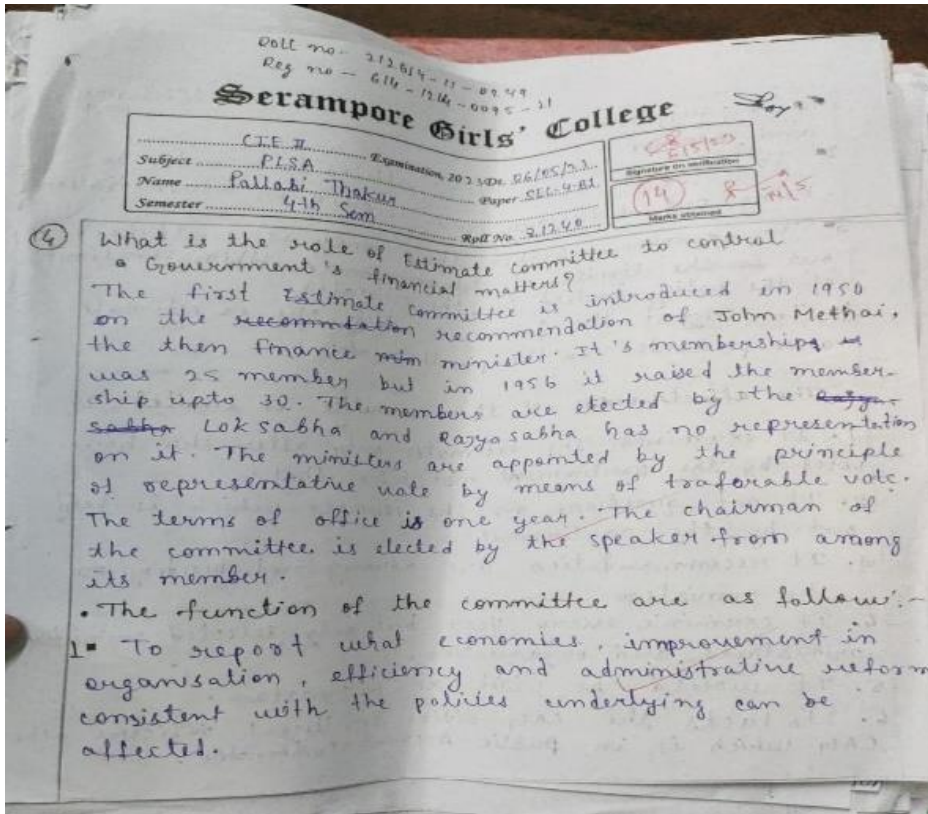 Roll no - 212614-11-0249
Reg no - 614-1214-0095-21
Serampore Girls' College
C.I.E II Examination, 2023 Dt. 06/05/23
Subject P.L.S.A Paper SEC-4-B1
Name Pallabi Thakur
Semester 4th Sem Roll No. 21240
Signature on verification
14
Marks obtained
4 What is the role of Estimate committee to control
Government's financial matters?
The first Estimate committee is introduced in 1950
on the recommendation of John Methai,
the then finance minister. It's membership
was 25 member but in 1956 it raised the member-
ship upto 30. The members are elected by the
Lok Sabha and Rajya sabha has no representation
on it. The ministers are appointed by the principle
of representative vote by means of traforable vote.
The terms of office is one year. The chairman of
the committee is elected by the speaker from among
its member.
• The function of the committee are as follow:-
1 To report what economies, improvement in
organisation, efficiency and administrative reform
consistent with the policies underlying can be
affected.